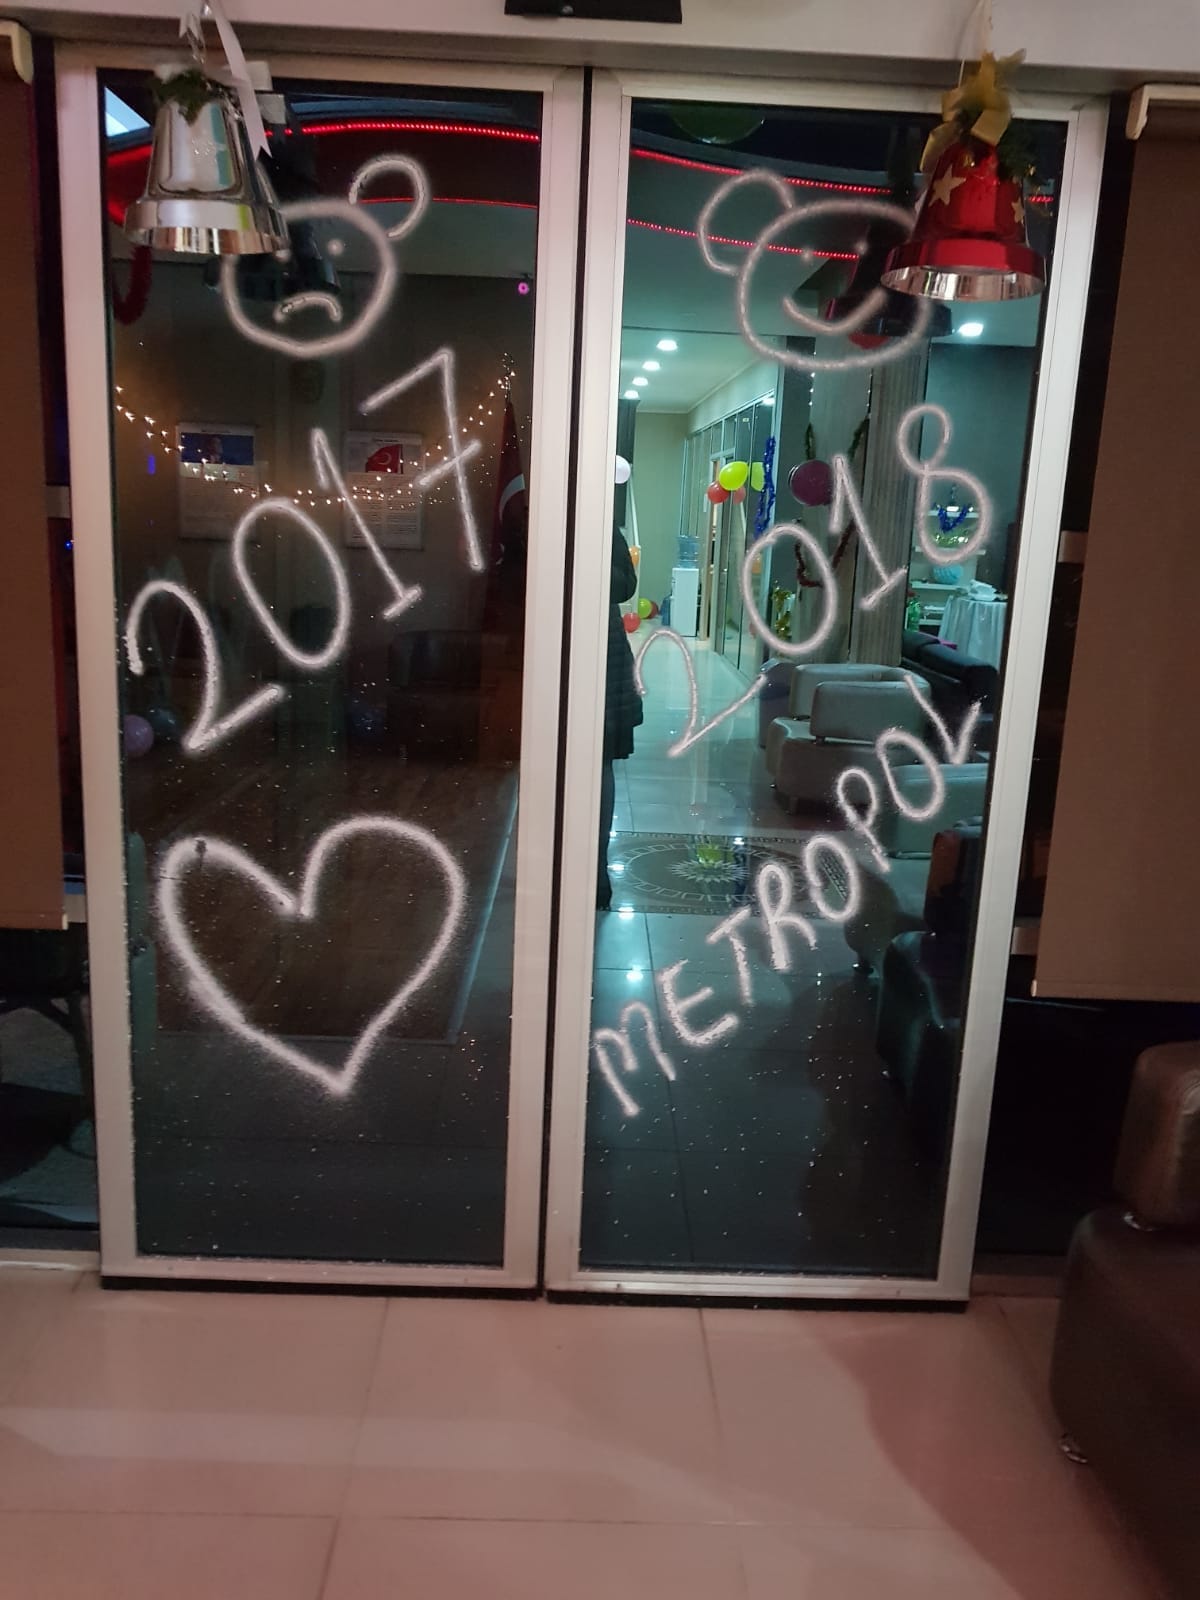 2017
2018
METROPOL